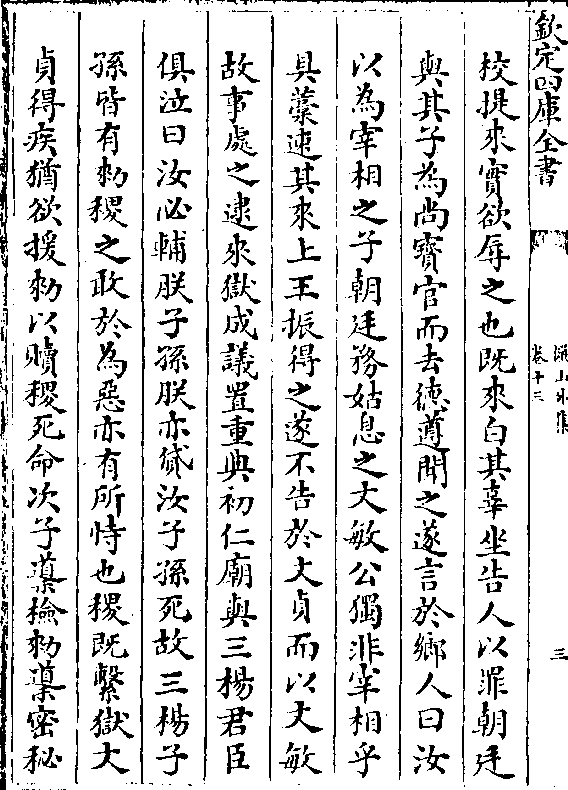 欽定四庫全書
卷十三
三
校提來實欲辱之也既來白其辜坐告人以罪朝廷
與其子為尚寳官而去德遵聞之遂言於鄉人曰汝
以為宰相之子朝廷務姑息之文敏公獨非宰相乎
具藁速其來上王振得之遂不告於文貞而以文敏
故事處之逮來獄成議置重典初仁廟與三楊君臣
俱泣曰汝必輔朕子孫朕亦貸汝子孫死故三楊子
孫皆有勅稷之敢於為惡亦有所恃也稷既繫獄文
貞得疾猶欲援勅以贖稷死命次子䆃檢勅䆃密秘